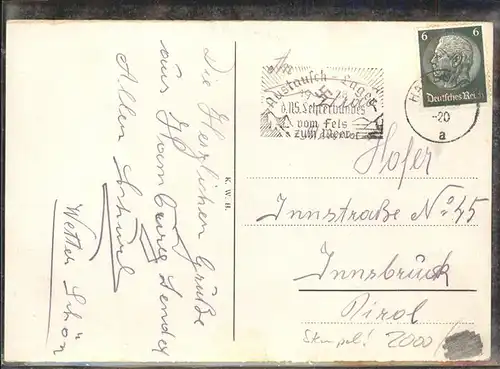 Die Herzlichen Grüße
aus Hamburg sendet
Allen
Wetter Schön
K. W. H.
An
Austausch-Lager
d. NS. Lehrerbundes
vom Fels
zum Meer
6 6
Deutsches Reich
HA
-20
a
Hofer
Innstraße No 45
Innsbrück
Tirol
Stempel! 2000